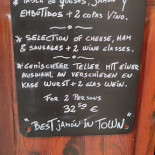 * TABLA DE QUESOS, JAMÓN Y
EMBUTIDOS + 2 COPAS VINO.
* SELECTION OF CHEESE, HAM
& SAUSAGES + 2 WINE GLASSES.
* GEMISCHTER TELLER MIT EINER
AUSWAHL AN VERSCHIEDEN EN
KÄSE WURST + 2 GLAS WEIN.
FOR 2 PERSONS
32'50 €
"BEST JAMÓN IN TOWN"